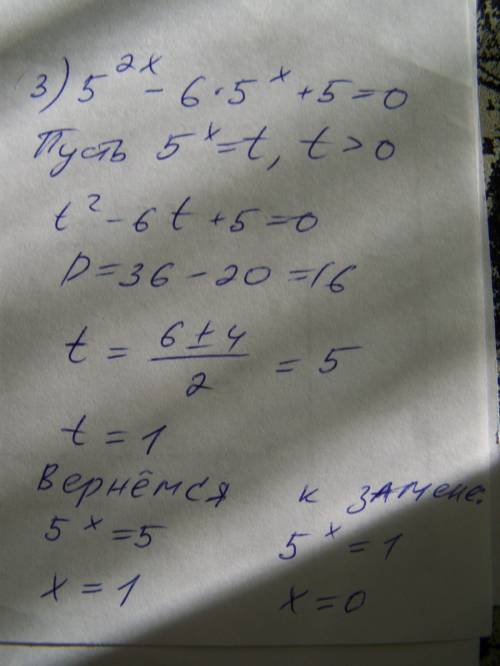 3) 5^{2x} - 6·5^x + 5 = 0
Пусть 5^x = t, t > 0
t² - 6t + 5 = 0
D = 36 - 20 = 16
t = \frac{6 ± 4}{2} = 5
t = 1
Вернёмся к замене.
5^x = 5 5^x = 1
x = 1 x = 0